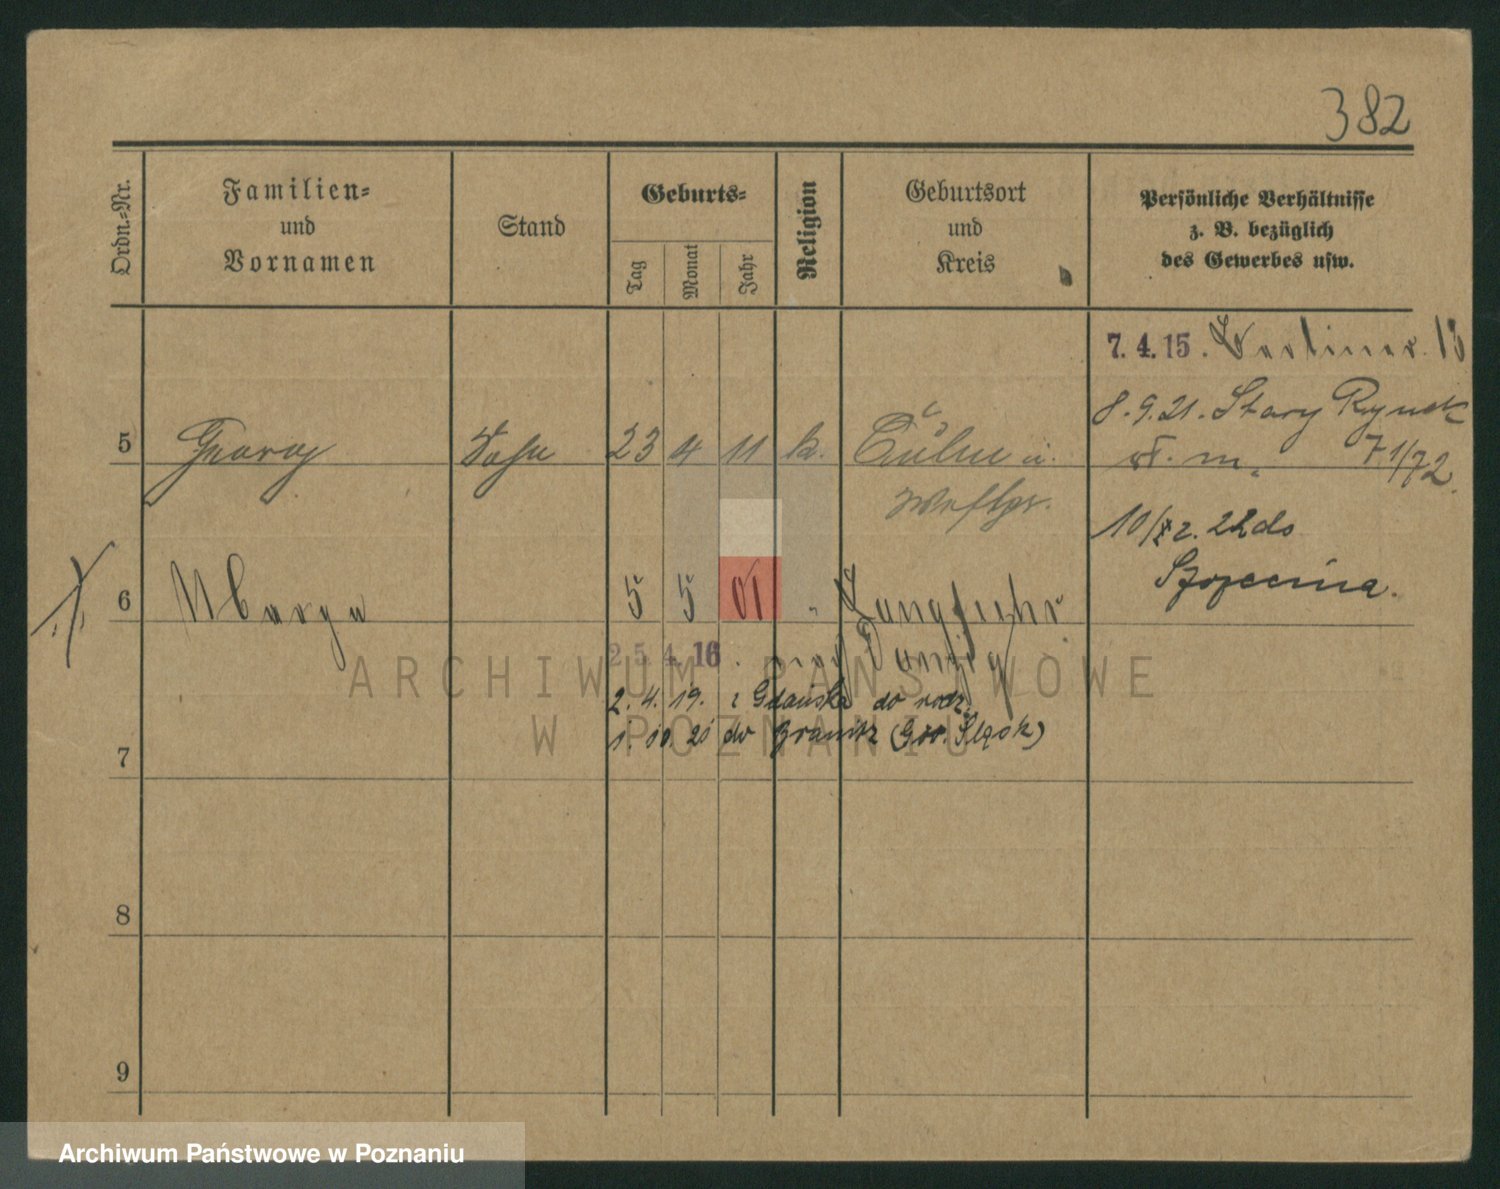 382
Ordn.-Nr.
Familien-
und
Vornamen
Stand
Geburts-
Tag
Monat
Jahr
Religion
Geburtsort
und
Kreis
Persönliche Verhältnisse
z. B. bezüglich
des Gewerbes usw.
7. 4. 15. Berliner. 13
8. 9. 21. Stary Rynek
71/72.
5 Georg Sohn 23 4 11 k. Culm
Westpr.
do
6 5 5 01 " Langfuhr
25. 4. 16. nach Danzig
2. 4. 19. z Gdańska do rodz.
1. 10. 20 do Branitz (Gór. Śląsk)
7
8
9
ARCHIWUM PAŃSTWOWE
W POZNANIU
Archiwum Państwowe w Poznaniu